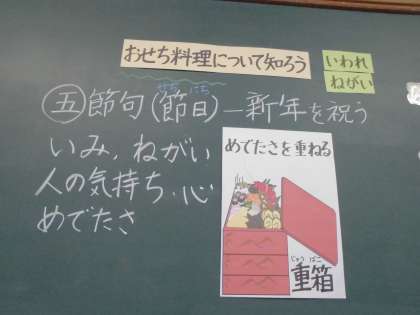 おせち料理について知ろう
いわれ
ねがい
せち にち
五節句(節日)―新年を祝う
いみ、ねがい
人の気持ち・心
めでたさ
めでたさを重ねる
じゅう ばこ
重箱